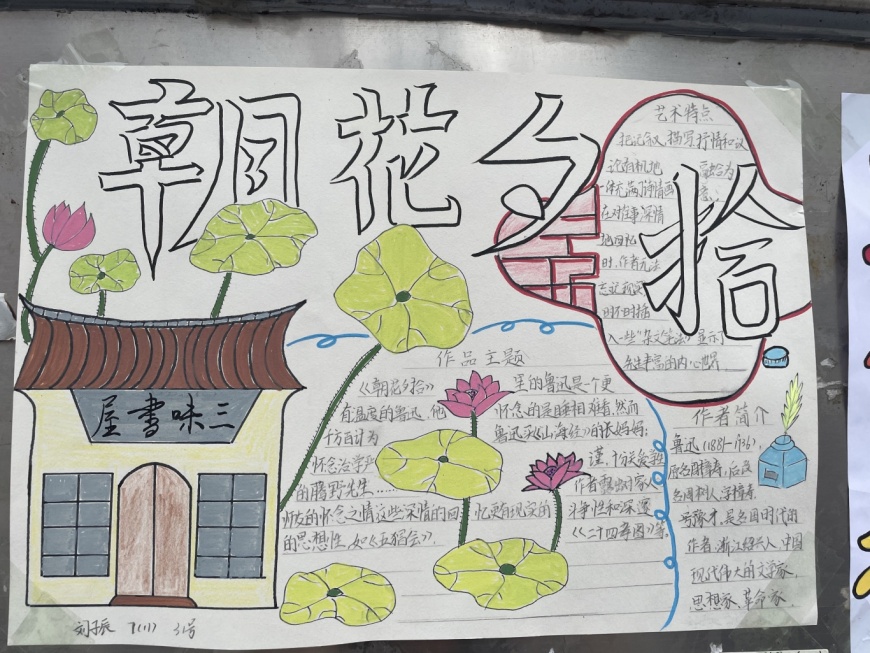 朝花夕拾
艺术特点
把记叙、描写、抒情和议
论有机地 融合为
一体,充满诗情画意;
在对往事深情
地回忆
时,作者无法
忘记现实
时不时插
入一些“杂文笔法”显示了
先生丰富的内心世界
三味書屋
作品主题
《朝花夕拾》 里的鲁迅是个更
有温度的鲁迅,他 怀念的是睡相难看,然而
千方百计为 鲁迅买《山海经》的长妈妈;
怀念治学严 谨、十分关爱
的藤野先生…… 作者
师友的怀念之情这些深情的回 忆更有现实的 斗争性和深邃
的思想性,如《五猖会》, 《二十四孝图》等。
作者简介
鲁迅(1881-1936),
原名周樟寿,后改
名周树人,字豫山,
号豫才,是
作者,浙江绍兴人,中国
现代伟大的文学家、
思想家、革命家
刘振 7(11) 31号